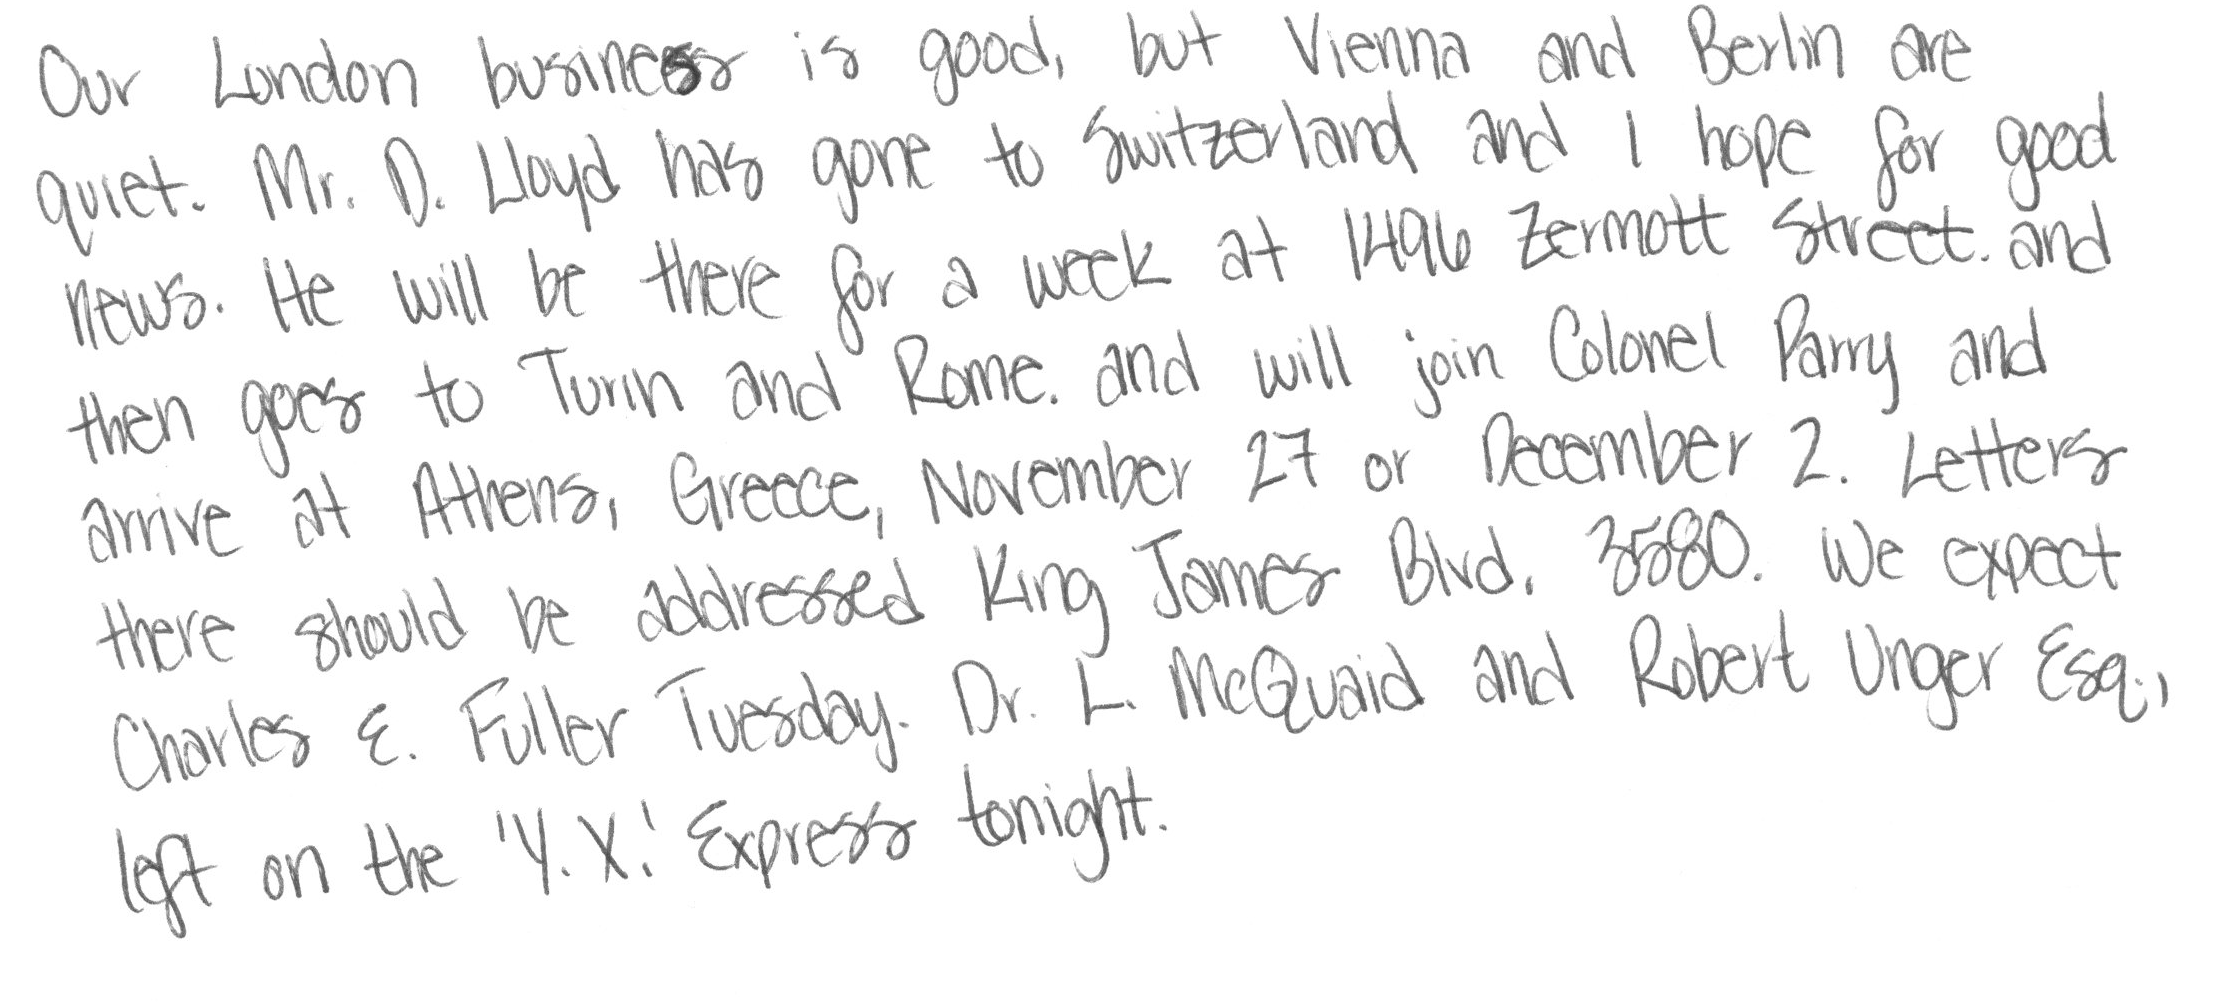 Our London business is good, but Vienna and Berlin are
quiet. Mr. D. Lloyd has gone to Switzerland and I hope for good
news. He will be there for a week at 1496 Zermott Street. and
then goes to Turin and Rome. and will join Colonel Parry and
arrive at Athens, Greece, November 27 or December 2. Letters
there should be addressed King James Blvd. 3580. We expect
Charles E. Fuller Tuesday. Dr. L. McQuaid and Robert Unger Esq.,
left on the 'Y. X.' Express tonight.